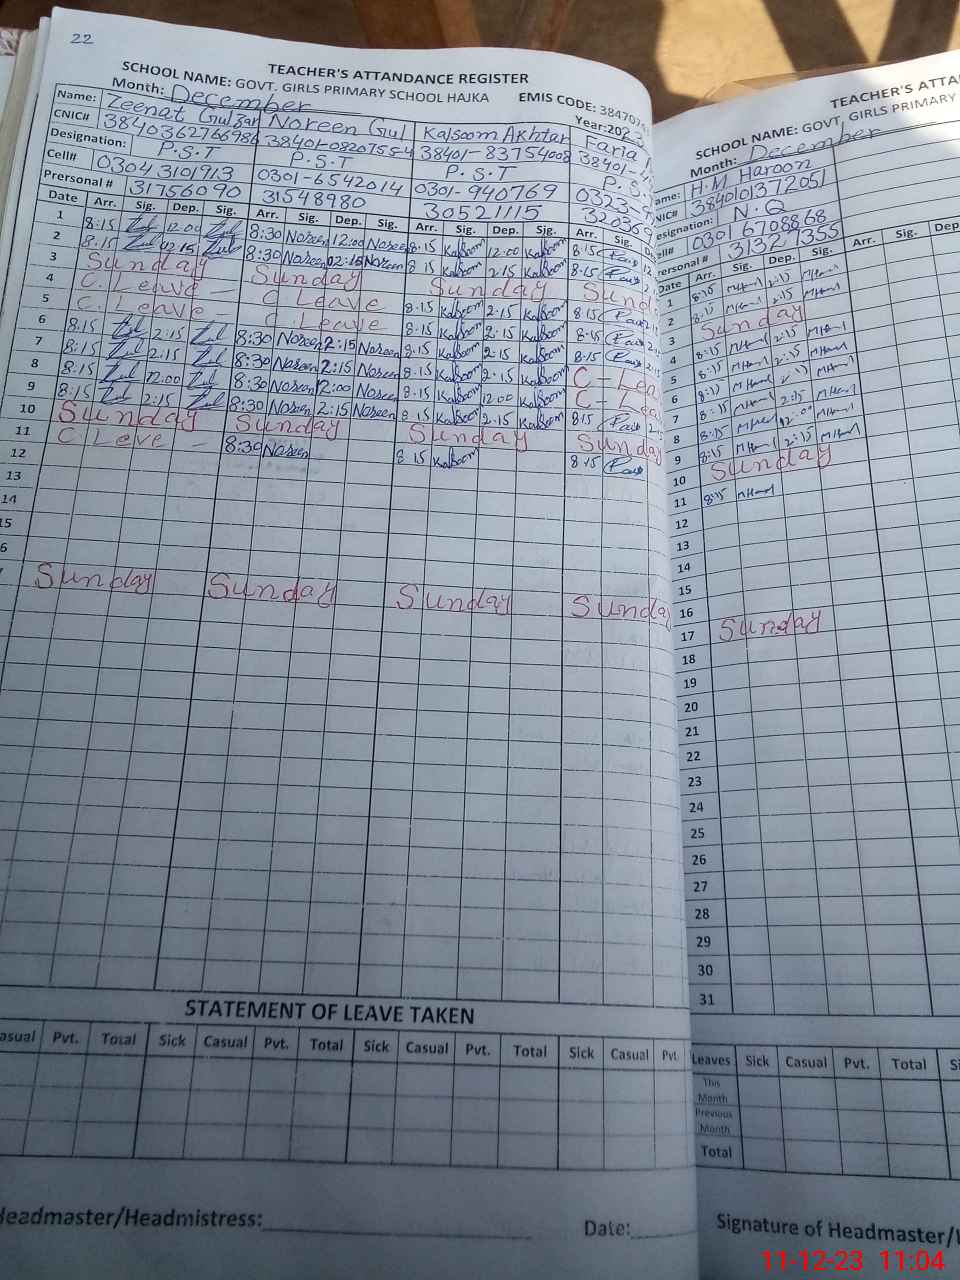 22
TEACHER'S ATTANDANCE REGISTER
SCHOOL NAME: GOVT. GIRLS PRIMARY SCHOOL HAJKA EMIS CODE: 384707
Month: December Year:202
Name: Zeenat Gulzar Noreen Gul Kalsoom Akhtar Faria
CNIC# 3840362766986 38401-08207554 38401-83754008 38401-
Designation: P.S.T P.S.T P.S.T P.S.
Cell# 03043101913 0301-6542014 0301-940769 0323-
Prersonal # 31756090 31548980 30521115 320369
Date Arr. Sig. Dep. Sig. Arr. Sig. Dep. Sig. Arr. Sig. Dep. Sig. Arr. Sig. De
1 8:15 12:00 8:30 Noreen 12:00 Noreen 8:15 Kalsoom 12:00 Kalsoom 8:15
2 8:15 02:15 8:30 Noreen 02:15 Noreen 8:15 Kalsoom 2:15 Kalsoom 8:15
3 Sunday Sunday Sunday Sund
4 C. Leave - C Leave 8:15 Kalsoom 2:15 Kalsoom 8:15
5 C. Leave - C Leave 8:15 Kalsoom 2:15 Kalsoom 8:15
6 8:15 2:15 8:30 Noreen 2:15 Noreen 8:15 Kalsoom 2:15 Kalsoom 8:15
7 8:15 2:15 8:30 Noreen 2:15 Noreen 8:15 Kalsoom 2:15 Kalsoom C-Lea
8 8:15 12:00 8:30 Noreen 12:00 Noreen 8:15 Kalsoom 12:00 Kalsoom C-Lea
9 8:15 2:15 8:30 Noreen 2:15 Noreen 8:15 Kalsoom 2:15 Kalsoom 8:15
10 Sunday Sunday Sunday Sunday
11 C Leve - 8:30 Noreen 8:15 Kalsoom 8:15
12
13
14
15
6
Sunday Sunday Sunday Sunda
STATEMENT OF LEAVE TAKEN
asual Pvt. Total Sick Casual Pvt. Total Sick Casual Pvt. Total Sick Casual Pvt.
Headmaster/Headmistress: Date:
TEACHER'S ATTA
SCHOOL NAME: GOVT. GIRLS PRIMARY
Month: December
ame: H.M Haroon
NIC# 3840101372051
esignation: N.Q
ell# 03016708868
Prersonal # 31327355
Date Arr. Sig. Dep. Sig. Arr. Sig. Dep
1 8:15 2:15
2 8:15 2:15
3 Sunday
4 8:15 2:15
5 8:15 2:15
6 8:15 2:15
7 8:15 2:15
8 8:15 12:00
9 8:15 2:15
10 Sunday
11 8:15
12
13
14
15
16
17 Sunday
18
19
20
21
22
23
24
25
26
27
28
29
30
31
Leaves Sick Casual Pvt. Total
This Month
Previous Month
Total
Signature of Headmaster/
11-12-23 11:04